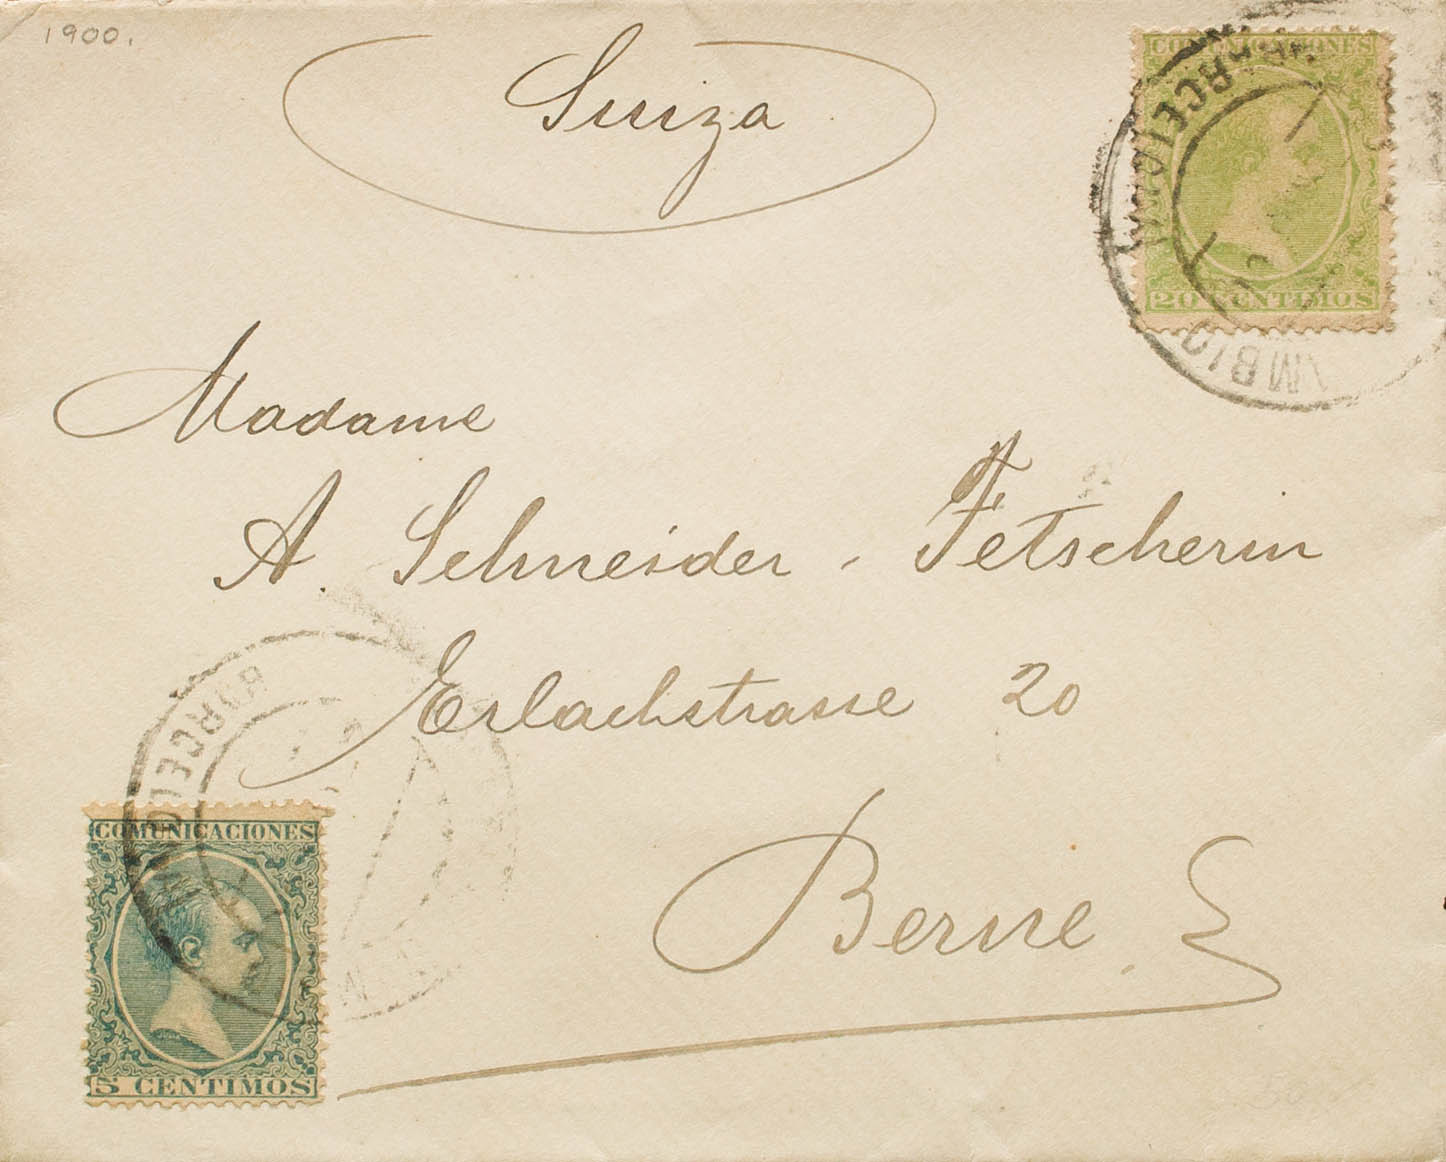 1900.
Suiza
COMUNICACIONES
20 CENTIMOS
BARCELONA
CAMBIO
Madame
A. Schneider - Fetscherin
Erlachstrasse 20
Berne.
BARCELONA
COMUNICACIONES
5 CENTIMOS